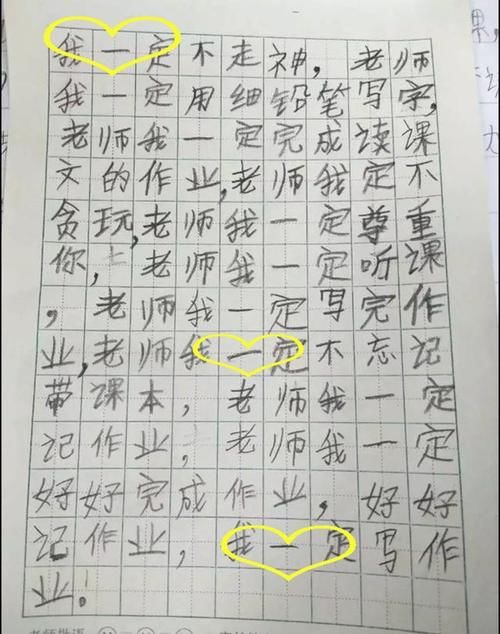 我一定不走神，老师
我一定用细铅笔写字，
老师我一定完成读课
文的作业，老师我定不
贪玩，老师我一定尊重
你，老师我一定听课
，老师我一定写完作
业，老师我一定不忘记
带课本，老师我一定
记作业，老师我一定
好好完成作业，好好
记作业，我一定写作
业！